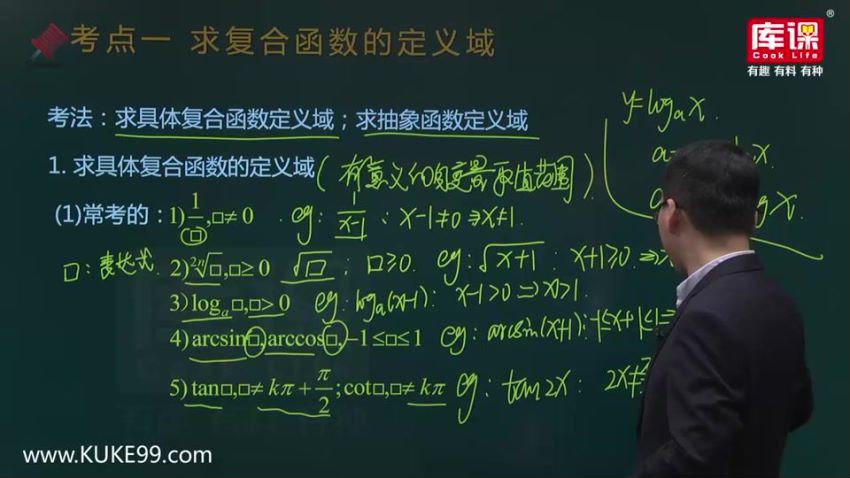 考点一 求复合函数的定义域
库课®
Cook Life
有趣 有料 有种
考法：求具体复合函数定义域；求抽象函数定义域
y=logₐx.
1. 求具体复合函数的定义域（有意义的自变量取值范围）
x.
(1)常考的：1) 1/□,□≠0 eg: 1/(x-1): x-1≠0⇒x≠1.
gx.
□：表达式. 2) ²ⁿ√□,□≥0 √□; □≥0. eg: √(x+1): x+1≥0.⇒
3) logₐ□,□>0 eg: logₐ(x-1): x-1>0⇒x>1.
4) arcsin□,arccos□,-1≤□≤1 eg: arcsin(x+1): -1≤x+1≤1⇒
5) tan□,□≠kπ+π/2;cot□,□≠kπ eg: tan2x: 2x≠
www.KUKE99.com